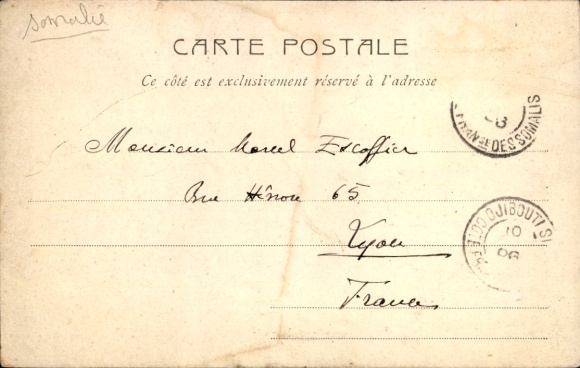 somalie
CARTE POSTALE
Ce côté est exclusivement réservé à l'adresse
Monsieur Marcel Escoffier
Rue Hénon 65
Lyon
France
DES SOMALIS
DJIBOUTI
10
06